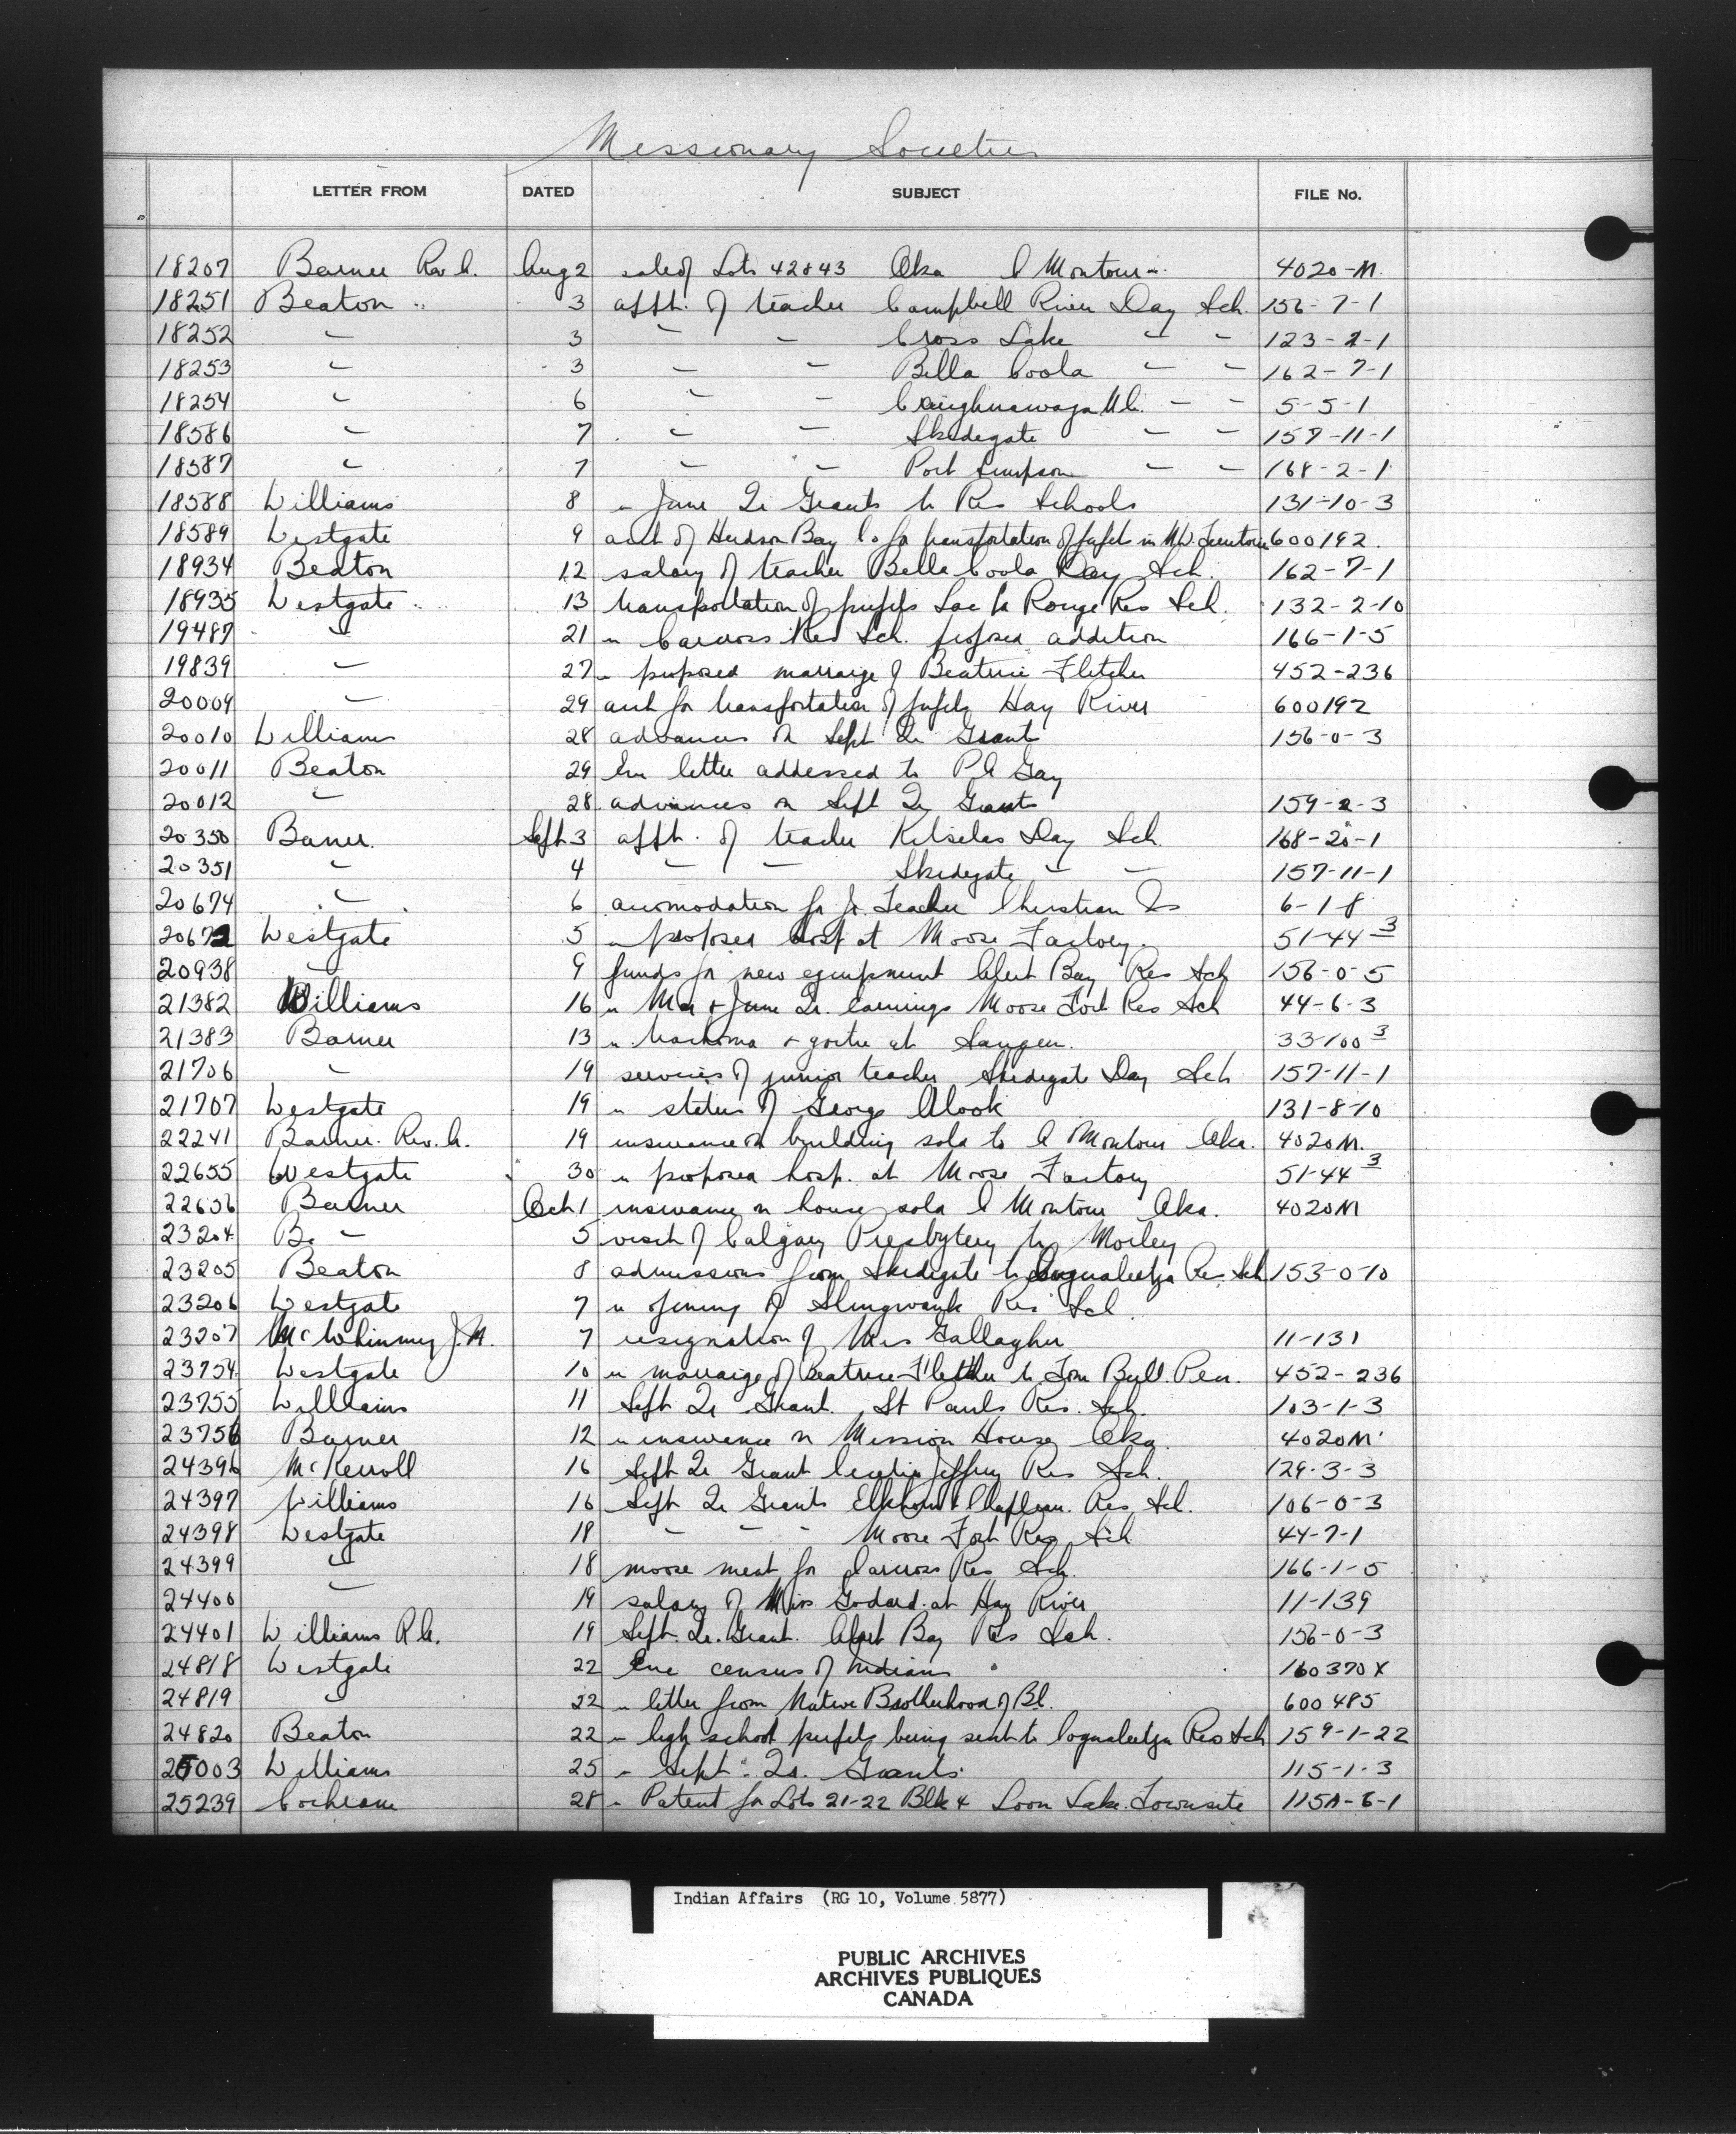 Missionary Societies
LETTER FROM DATED SUBJECT FILE No.
18207 Barner Rev A. Aug 2 sale of Lots 42843 Oka C Montour 4020-M
18251 Beaton " 3 appt. of teacher Campbell River Day Sch. 156-7-1
18252 " 3 " " Cross Lake " " 123-2-1
18253 " 3 " " Bella Coola " " 162-7-1
18254 " 6 " " Caughnawaga U.C. " " 5-5-1
18586 " 7 " " Skidegate " " 157-11-1
18587 " 7 " " Port Simpson " " 168-2-1
18588 Williams 8 " June Qr Grants to Res Schools 131-10-3
18589 Westgate 9 acct of Hudson Bay Co for transportation of pupils in N.W. Territories 600192
18934 Beaton 12 salary of teacher Bella Coola Day Sch. 162-7-1
18935 Westgate 13 transportation of pupils Lac la Ronge Res Sch. 132-2-10
19487 " 21 " Carcross Res Sch. proposed addition 166-1-5
19839 " 27 " proposed marraige of Beatrice Fletcher 452-236
20009 " 29 acct for transportation of pupils Hay River 600192
20010 Williams 28 advances on Sept Qr Grant 156-0-3
20011 Beaton 29 letter addressed to P.A Gay
20012 " 28 advances on Sept Qr Grants 159-2-3
20350 Barner. Sept 3 appt. of teacher Kitselas Day Sch. 168-20-1
20351 " 4 " " Skidegate " " 157-11-1
20674 " 6 accomodation for Jr. Teacher Christian Is 6-1-8
20672 Westgate 5 " proposed hosp at Moose Factory. 51-44-3
20938 " 9 funds for new equipment Alert Bay Res Sch 156-0-5
21382 Williams 16 " Mar & June Qr. earnings Moose Fort Res Sch 44-6-3
21383 Barner 13 " trachoma & goitre at Saugeen. 33-100-3
21706 " 19 services of junior teacher Skidegate Day Sch 157-11-1
21707 Westgate 19 " status of George Alook 131-8-10
22241 Barner. Rev. A. 19 insurance on building sold to C Montour Oka. 4020M.
22655 Westgate 30 " proposed hosp. at Moose Factory 51-44-3
22656 Barner Oct 1 insurance on house sold C Montour Oka. 4020M
23204 Ba " 5 visit of Calgary Presbytery to Morley
23205 Beaton 8 admissions from Skidegate to Coqualeetza Res. Sch 153-0-10
23206 Westgate 7 " opening of Shingwauk Res Sch
23207 McWhinney J.M. 7 resignation of Mrs Gallagher 11-131
23754 Westgate 10 " marraige of Beatrice Fletcher to Tom Bull. Pen. 452-236
23755 Williams 11 Sept Qr Grant. St Pauls Res. Sch. 103-1-3
23756 Barner 12 " insurance on Mission House Oka. 4020M
24396 McKerroll 16 Sept Qr Grant Cecilia Jeffrey Res Sch. 129-3-3
24397 Williams 16 Sept Qr Grants Elkhorn & Chapleau. Res. Sch. 106-0-3
24398 Westgate 18 " " " Moose Fort Res Sch 44-7-1
24399 " 18 moose meat for Carcross Res Sch. 166-1-5
24400 " 19 salary of Miss Godard. at Hay River 11-139
24401 Williams R.A. 19 Sept. Qr. Grant. Alert Bay Res Sch. 156-0-3
24818 Westgate 22 census of Indians 160370X
24819 " 22 " letter from Native Brotherhood of B.C. 600485
24820 Beaton 22 " high school pupils being sent to Coqualeetza Res Sch 159-1-22
25003 Williams 25 " Sept. Qr. Grants. 115-1-3
25239 Cochrane 28 " Patent for Lots 21-22 Blk 4 Loon Lake. Townsite 115A-6-1
Indian Affairs (RG 10, Volume 5877)
PUBLIC ARCHIVES
ARCHIVES PUBLIQUES
CANADA